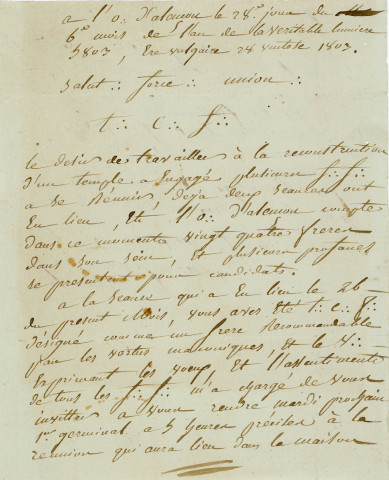 a l'o∴ d'alençon le 28e jour du
6e mois de l'an de la veritable lumiere
5803, Ere vulgaire 28 ventose 1803.
Salut ∴ force ∴ union ∴
t∴ c∴ f∴
le desir de travailler à la reconstruction
d'un temple a Engagé plusieurs f∴ f∴
a se Reunir, deja deux seances ont
Eu lieu, Et l'o∴ d'alençon compte
dans ce moment vingt quatre freres
dans son sein, et plusieurs profanes
se presentent pour candidats.
a la seance qui a Eu lieu le 26
du present Mois, vous avez été t∴ c∴ f∴
désigné comme un frere Recommandable
par les vertus maconniques, et le V∴
Exprimant les voeux, et l'assentiment
de tous les f∴ f∴ m'a chargé de vous
invitter a vous rendre mardi prochain
1er germinal a 5 heures précises à la
reunion qui aura lieu dans la maison